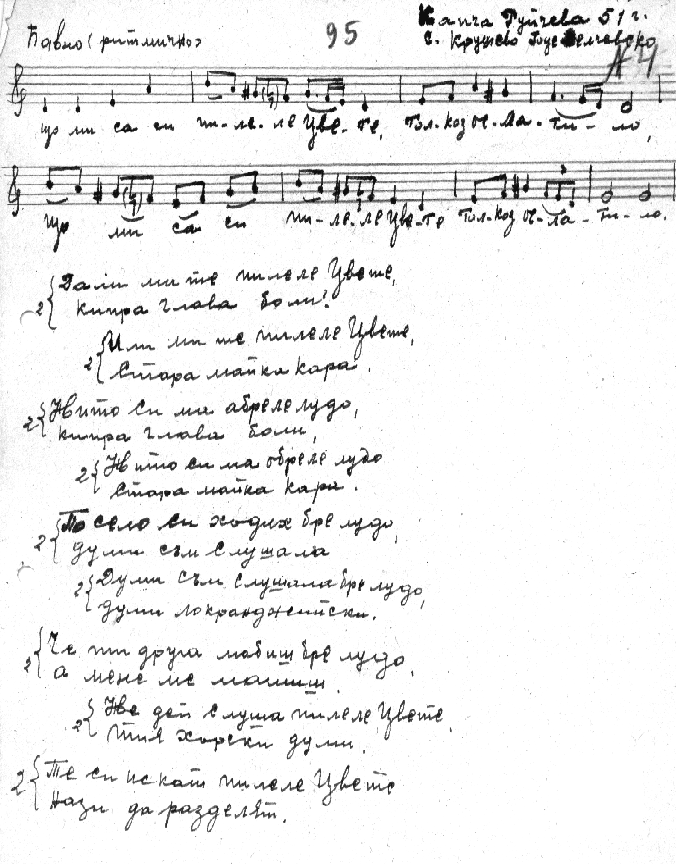 Бавно (ритмично)
95
Капча Гуйчева 51 г.
с. Крушево Гоце Делчевско
А 4
що ми са си пи-ле-ле Цве-те, Тол-коз не-ла-ти-ло,
що ми са си пи-ле-ле Цве-те Тол-коз не-ла-ти-ло.
2{ Дали ми те пилеле Цвете,
кипра глава боли?
2{ Или ми те пилеле Цвете,
Стара майка кара.
2{ Нито си ма абреле лудо,
кипра глава боли,
2{ Нито си ма обреле лудо
Стара майка кара.
2{ По село си ходих бре лудо,
думи съм слушала
2{ Думи съм слушала бре лудо,
думи локранджийски.
2{ Че ти друга любиш бре лудо,
а мене ме мамиш.
2{ Не дей слуша пилеле Цвете,
тия хорски думи.
2{ Те си искат пилеле Цвете
Нази да разделят.